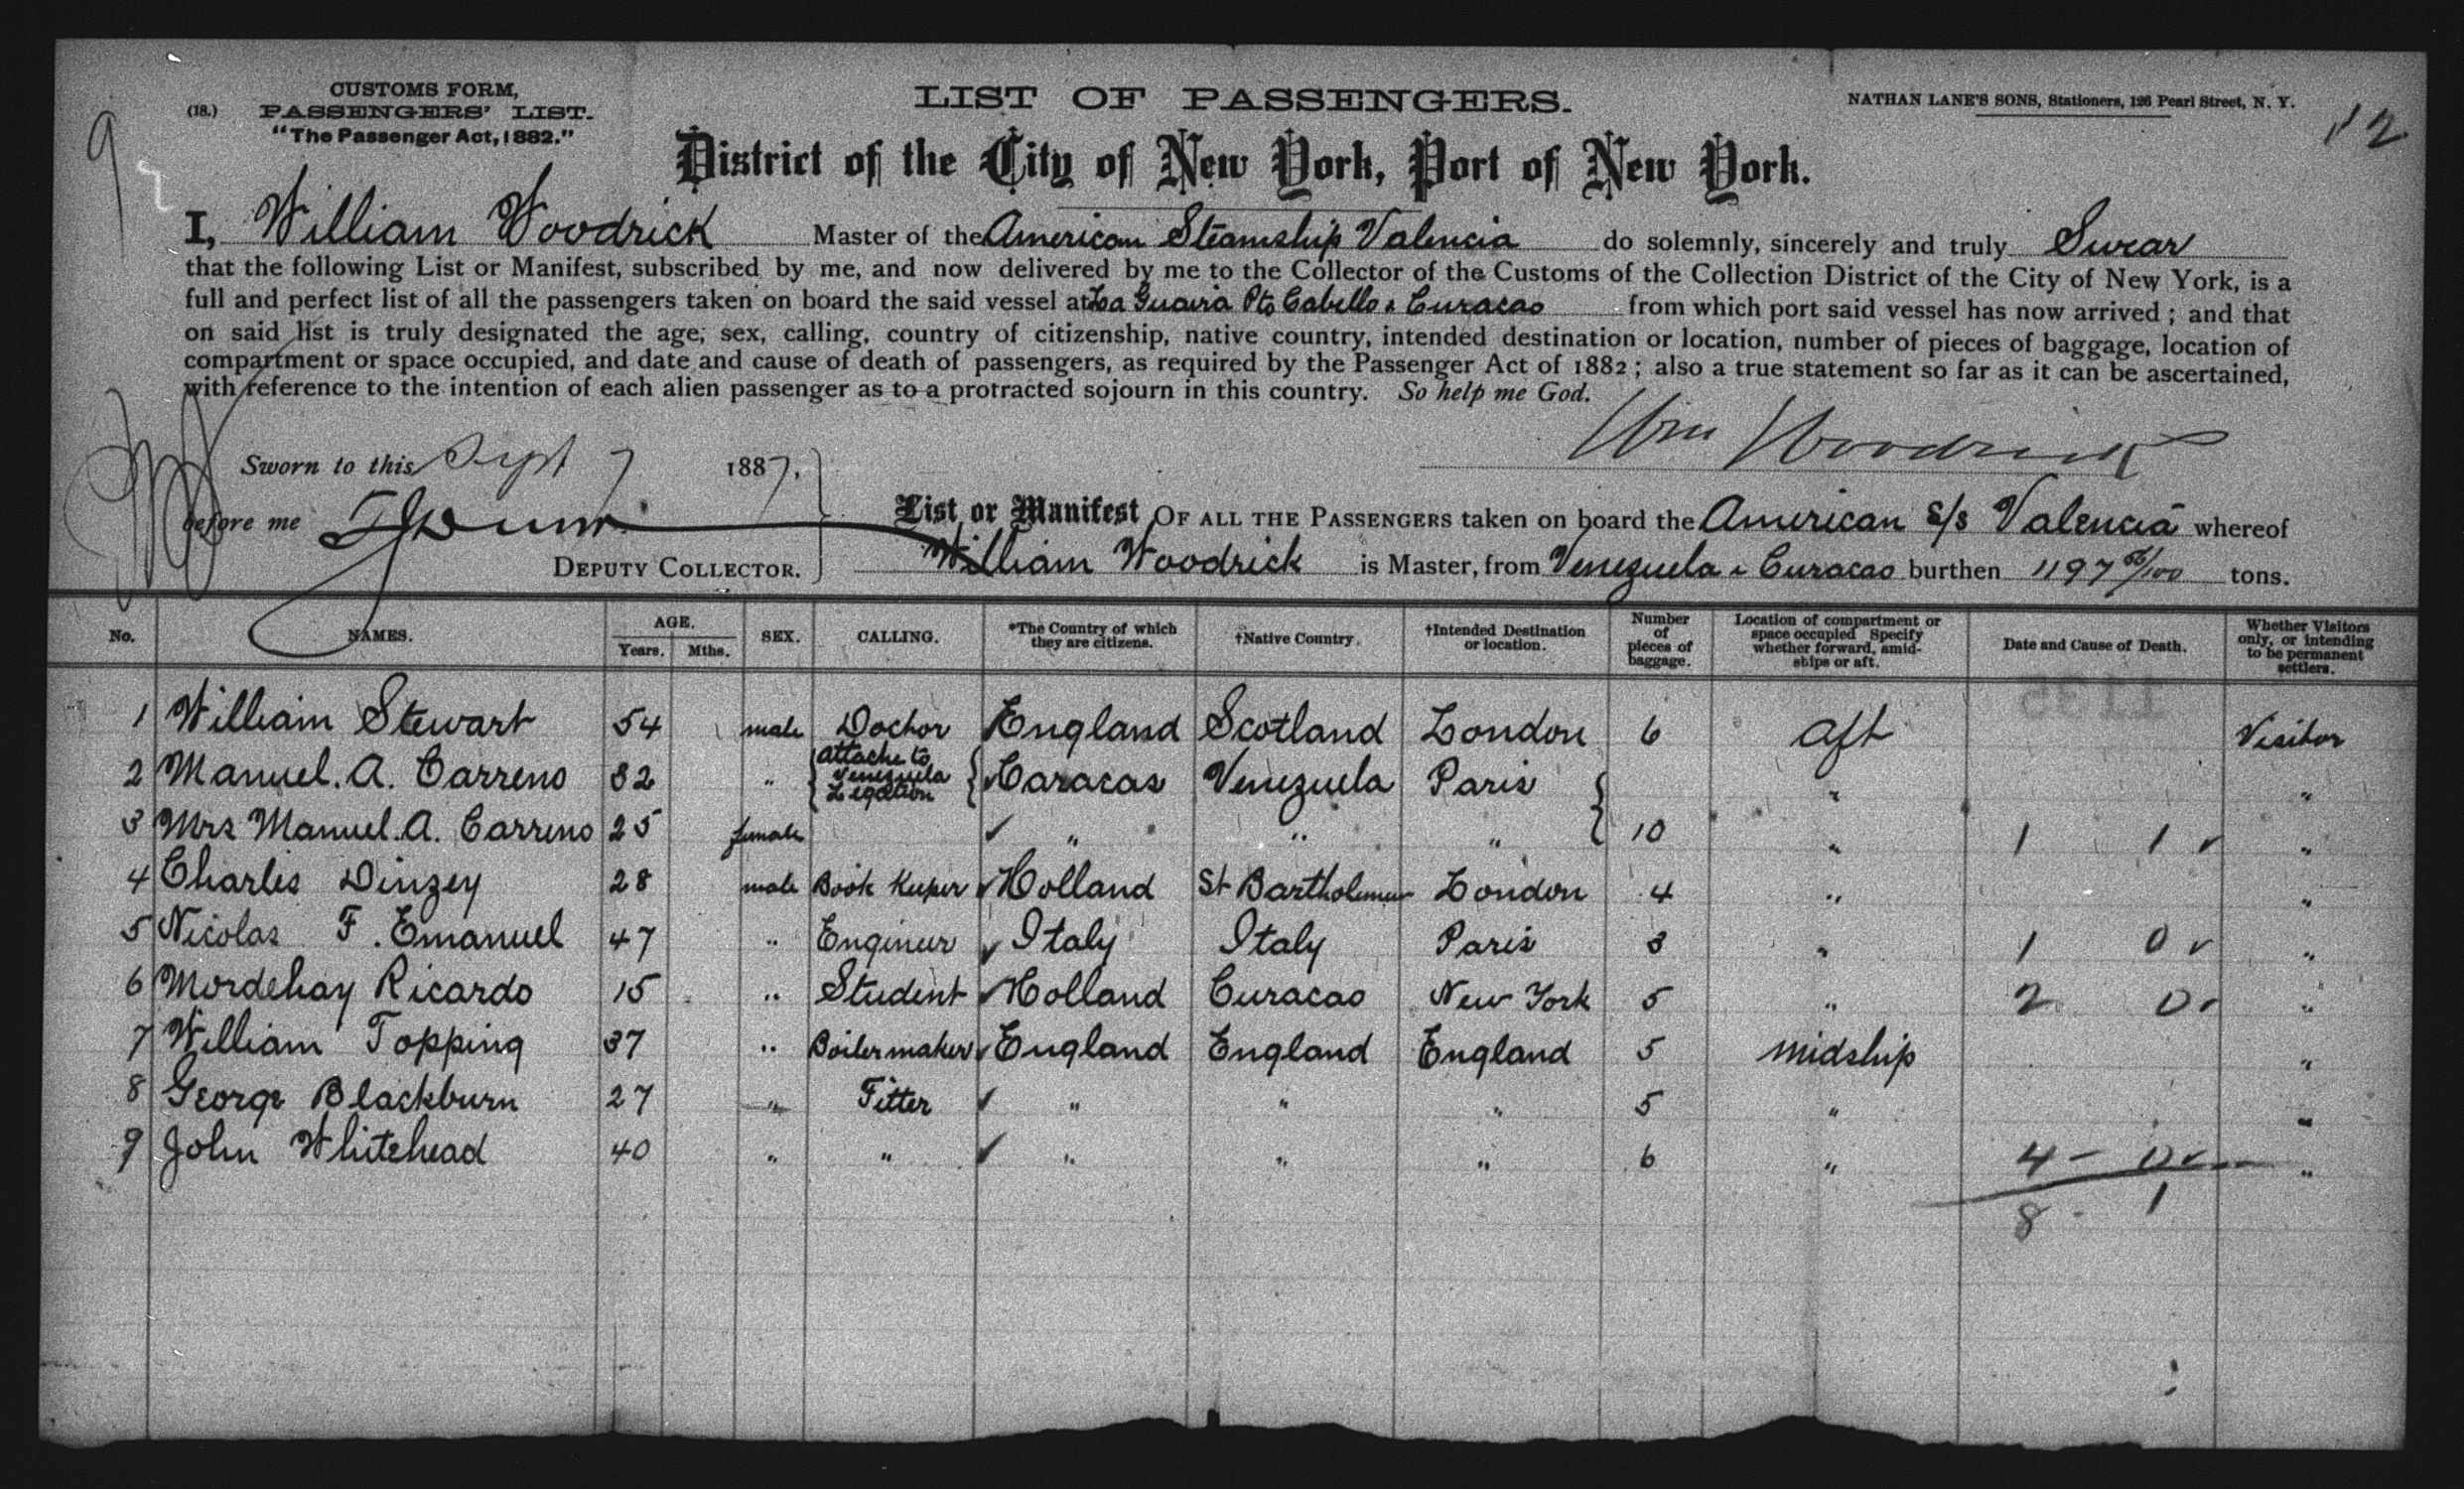 CUSTOMS FORM,
(18.) PASSENGERS' LIST.
"The Passenger Act, 1882."
LIST OF PASSENGERS.
NATHAN LANE'S SONS, Stationers, 126 Pearl Street, N. Y.
9
12
District of the City of New York, Port of New York.
I, William Woodrick Master of the American Steamship Valencia do solemnly, sincerely and truly Swear
that the following List or Manifest, subscribed by me, and now delivered by me to the Collector of the Customs of the Collection District of the City of New York, is a
full and perfect list of all the passengers taken on board the said vessel at La Guaira Pto Cabello & Curacao from which port said vessel has now arrived; and that
on said list is truly designated the age, sex, calling, country of citizenship, native country, intended destination or location, number of pieces of baggage, location of
compartment or space occupied, and date and cause of death of passengers, as required by the Passenger Act of 1882; also a true statement so far as it can be ascertained,
with reference to the intention of each alien passenger as to a protracted sojourn in this country. So help me God.
Wm Woodrick
Sworn to this Sept 7 1887,
before me
DEPUTY COLLECTOR.
List or Manifest OF ALL THE PASSENGERS taken on board the American S/s Valencia whereof
William Woodrick is Master, from Venezuela & Curacao burthen 1197 tons.
No. NAMES. AGE. Years. Mths. SEX. CALLING. *The Country of which they are citizens. †Native Country. †Intended Destination or location. Number of pieces of baggage. Location of compartment or space occupied Specify whether forward, amidships or aft. Date and Cause of Death. Whether Visitors only, or intending to be permanent settlers.
1135
1 William Stewart 54 male Doctor England Scotland London 6 Aft Visitor
2 Manuel. A. Carreno 32 " attache to Venezuela Legation Caracas Venezuela Paris " "
3 Mrs Manuel. A. Carreno 25 female " " " 10 " 1 1 "
4 Charles Dinzey 28 male Book Keeper Holland St Bartholomew London 4 " "
5 Nicolas F. Emanuel 47 " Engineer Italy Italy Paris 3 " 1 0 "
6 Mordehay Ricardo 15 " Student Holland Curacao New York 5 " 2 0 "
7 William Topping 37 " Boilermaker England England England 5 Midship "
8 George Blackburn 27 " Fitter " " " 5 " "
9 John Whitehead 40 " " " " " 6 " 4 - 0 "
8 - 1